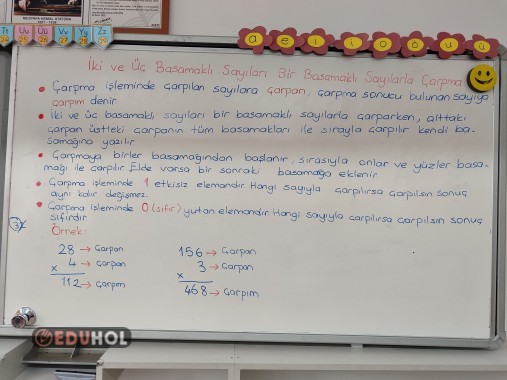 MUSTAFA KEMAL ATATÜRK
Tt Uu Üü Vv Yy Zz
24 25 26 27 28 29
a e ı i o ö u ü
İki ve Üç Basamaklı Sayıları Bir Basamaklı Sayılarla Çarpma
• Çarpma işleminde çarpılan sayılara çarpan, çarpma sonucu bulunan sayıya
çarpım denir
• İki ve üç basamaklı sayıları bir basamaklı sayılarla çarparken, alttaki
çarpan üstteki çarpanın tüm basamakları ile sırayla çarpılır kendi ba-
samağına yazılır
• Çarpmaya birler basamağından başlanır, sırasıyla onlar ve yüzler basa-
mağı ile çarpılır Elde varsa bir sonraki basamağa eklenir
• Çarpma işleminde 1 etkisiz elemandır. Hangi sayıyla çarpılırsa çarpılsın sonuç
aynı kalır değişmez.
• Çarpma işleminde 0 (sıfır) yutan elemandır. Hangi sayıyla çarpılırsa çarpılsın sonuç
sıfırdır
Örnek:
28 → Çarpan 156 → Çarpan
x 4 → Çarpan x 3 → Çarpan
112 → Çarpım 468 → Çarpım
EDUHOL